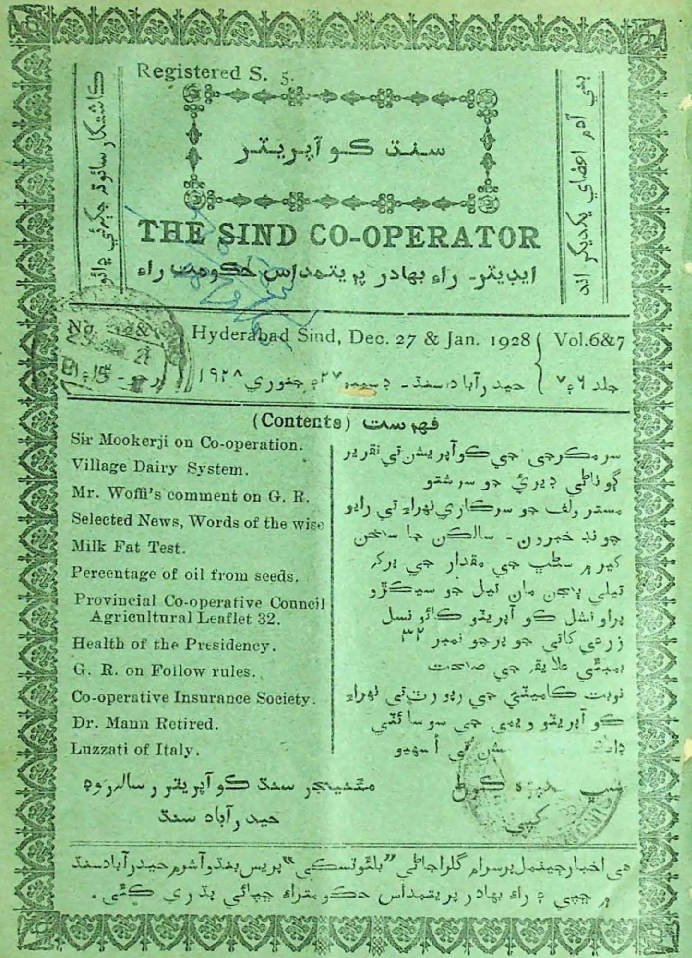 Registered S. 5.
ڪاشتڪار سانوڻ جيڪري ڄاڻو
بني آدم اعضاي يڪديگر اند
سنڌ ڪو آپريٽر
THE SIND CO-OPERATOR
ايڊيٽر- راءِ بهادر پريتمداس حڪومت راءِ
No.
Hyderabad Sind, Dec. 27 & Jan. 1928 Vol.6&7
حيدرآباد سنڌ- ڊسمبر ٢٧ ۽ جنوري ١٩٢٨ جلد ٦ ۽ ٧
(Contents) فهرست
Sir Mookerji on Co-operation.
Village Dairy System.
Mr. Woffi's comment on G. R.
Selected News, Words of the wise
Milk Fat Test.
Percentage of oil from seeds.
Provincial Co-operative Council
Agricultural Leaflet 32.
Health of the Presidency.
G. R. on Follow rules.
Co-operative Insurance Society.
Dr. Mann Retired.
Luzzati of Italy.
سر مڪرجي جي ڪو آپريشن تي تقرير
ڳوٺاڻي ڊيري جو سرشتو
مستر ولف جو سرڪاري ٺهراءِ تي رايو
چونڊ خبرون - سالڪن جا سخن
کير ۾ سڻڀ جي مقدار جي پرک
تيلي ٻجن مان تيل جو سيڪڙو
پراونشل ڪو آپريٽو ڪائونسل
زرعي کاتي جو پرچو نمبر ٣٢
بمبئي علائقه جي صحت
نوبت ڪاميٽي جي رپورٽ تي ٺهراءِ
ڪو آپريٽو ويمي جي سوسائٽي
مئنيجر سنڌ ڪو آپريٽر رسالو روڊ
حيدرآباد سنڌ
هي اخبار چيٽمل پرسرام گلراجاڻي "بلئوٽسڪي" پريس هندو آشرم حيدرآباد سنڌ
۾ ڇپي ۽ راءِ بهادر پريتمداس حڪومتراءِ ڇپائي پڌري ڪئي.